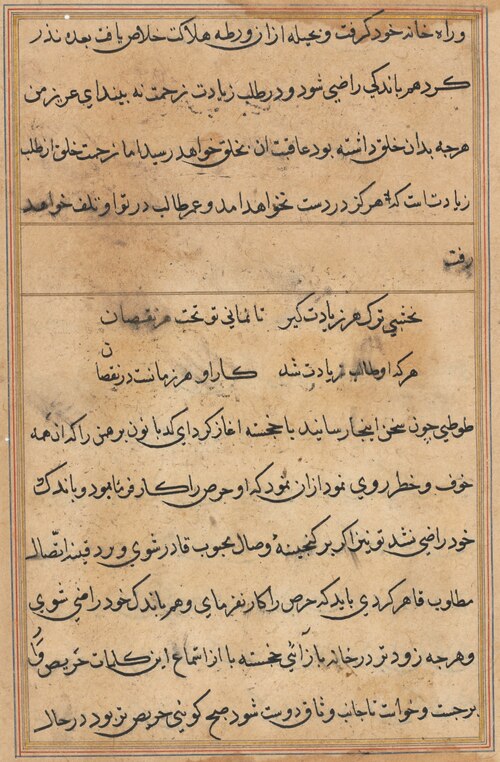 و راه خانه خود گرفت و بحیله از ان ورطه هلاکت خلاص یافت بعده نذر
کرد هم باندکی راضی شود و در طلب زیادت زحمت نه بیند ای عزیز من
هرچه بدان خلق داشته بود عاقبت ان بخلق خواهد رسید اما زحمت خلق از طلب
زیادت است که هرگز در دست نخواهد امد و عمر طالب در تو او تلف خواهد
رفت
نخشبی ترک هر زیادت گیر تا نمانی تو تحت هر نقصان
هرکه او طالب زیادت شد کار او هر زمانست در نقصان
طوطی چون سخن اینجا رسانید با خجسته اغاز کرد ای کدبانو برهمن را که ان همه
خوف و خطر روی نمود از ان نمود که او حرص را کار فرما بود و باندک
خود راضی نشد تو نیز اکر بر کنجینهٔ وصال محبوب قادر شوی و بر دفینه اتّصال
مطلوب قاهر کردی باید که حرص را کار نفرمای و هم باندک خود راضی شوی
و هرچه زودتر در خانه باز آئی خجسته با از استماع این کلمات حریص وار
برجست و خواست تا جانب وثاق دوست شود صبح کوئی حریص تر بود در حال